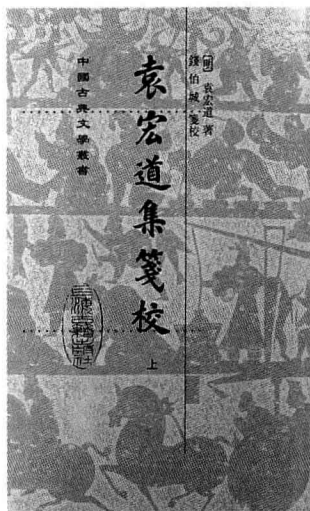 [明] 袁宏道著
錢伯城箋校
袁宏道集箋校
上
中國古典文學叢書